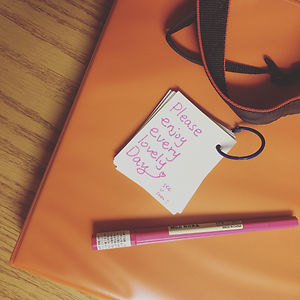 Please
enjoy
every
lovely
Day
see
u